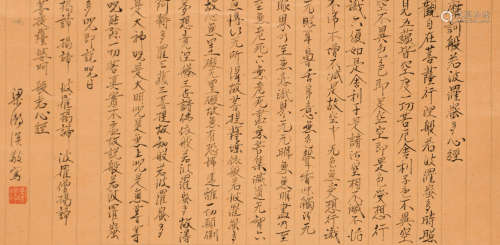 摩訶般若波羅蜜多心經
觀自在菩薩行深般若波羅蜜多時照
見五蘊皆空度一切苦厄舍利子色不異空
空不異色色即是空空即是色受想行
識亦復如是舍利子是諸法空相不生不滅不垢
不淨不增不減是故空中无色无受想行識
无眼耳鼻舌身意无色聲香味觸法无
眼界乃至無意識界无无明亦無無明盡乃至
無老死亦無老死盡無苦集滅道无智亦
無得以无所得故菩提薩埵依般若波羅蜜多
故心無罣礙無罣礙故無有恐怖遠離一切顛倒
夢想究竟涅槃三世諸佛依般若波羅蜜多故得
阿耨多羅三藐三菩提故知般若波羅蜜多
是大神咒是大明咒是無上咒是無等等
咒能除一切苦真實不虛故說般若波羅蜜
多咒即說咒曰
揭諦 揭諦 波羅揭諦 波羅僧揭諦
菩提薩婆訶 般若心經
梁漱溟敬寫